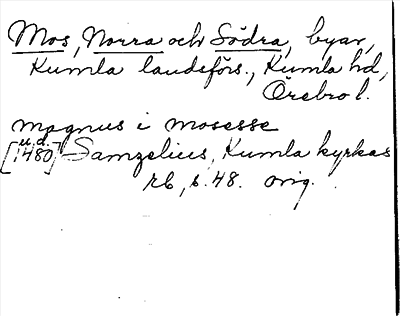 Mos, Norra och Södra, byar,
Kumla landsförs., Kumla hd,
Örebro l.
magnus i mosesse
[u.d. 1480] Samzelius, Kumla kyrkas
rb, s. 48. orig.